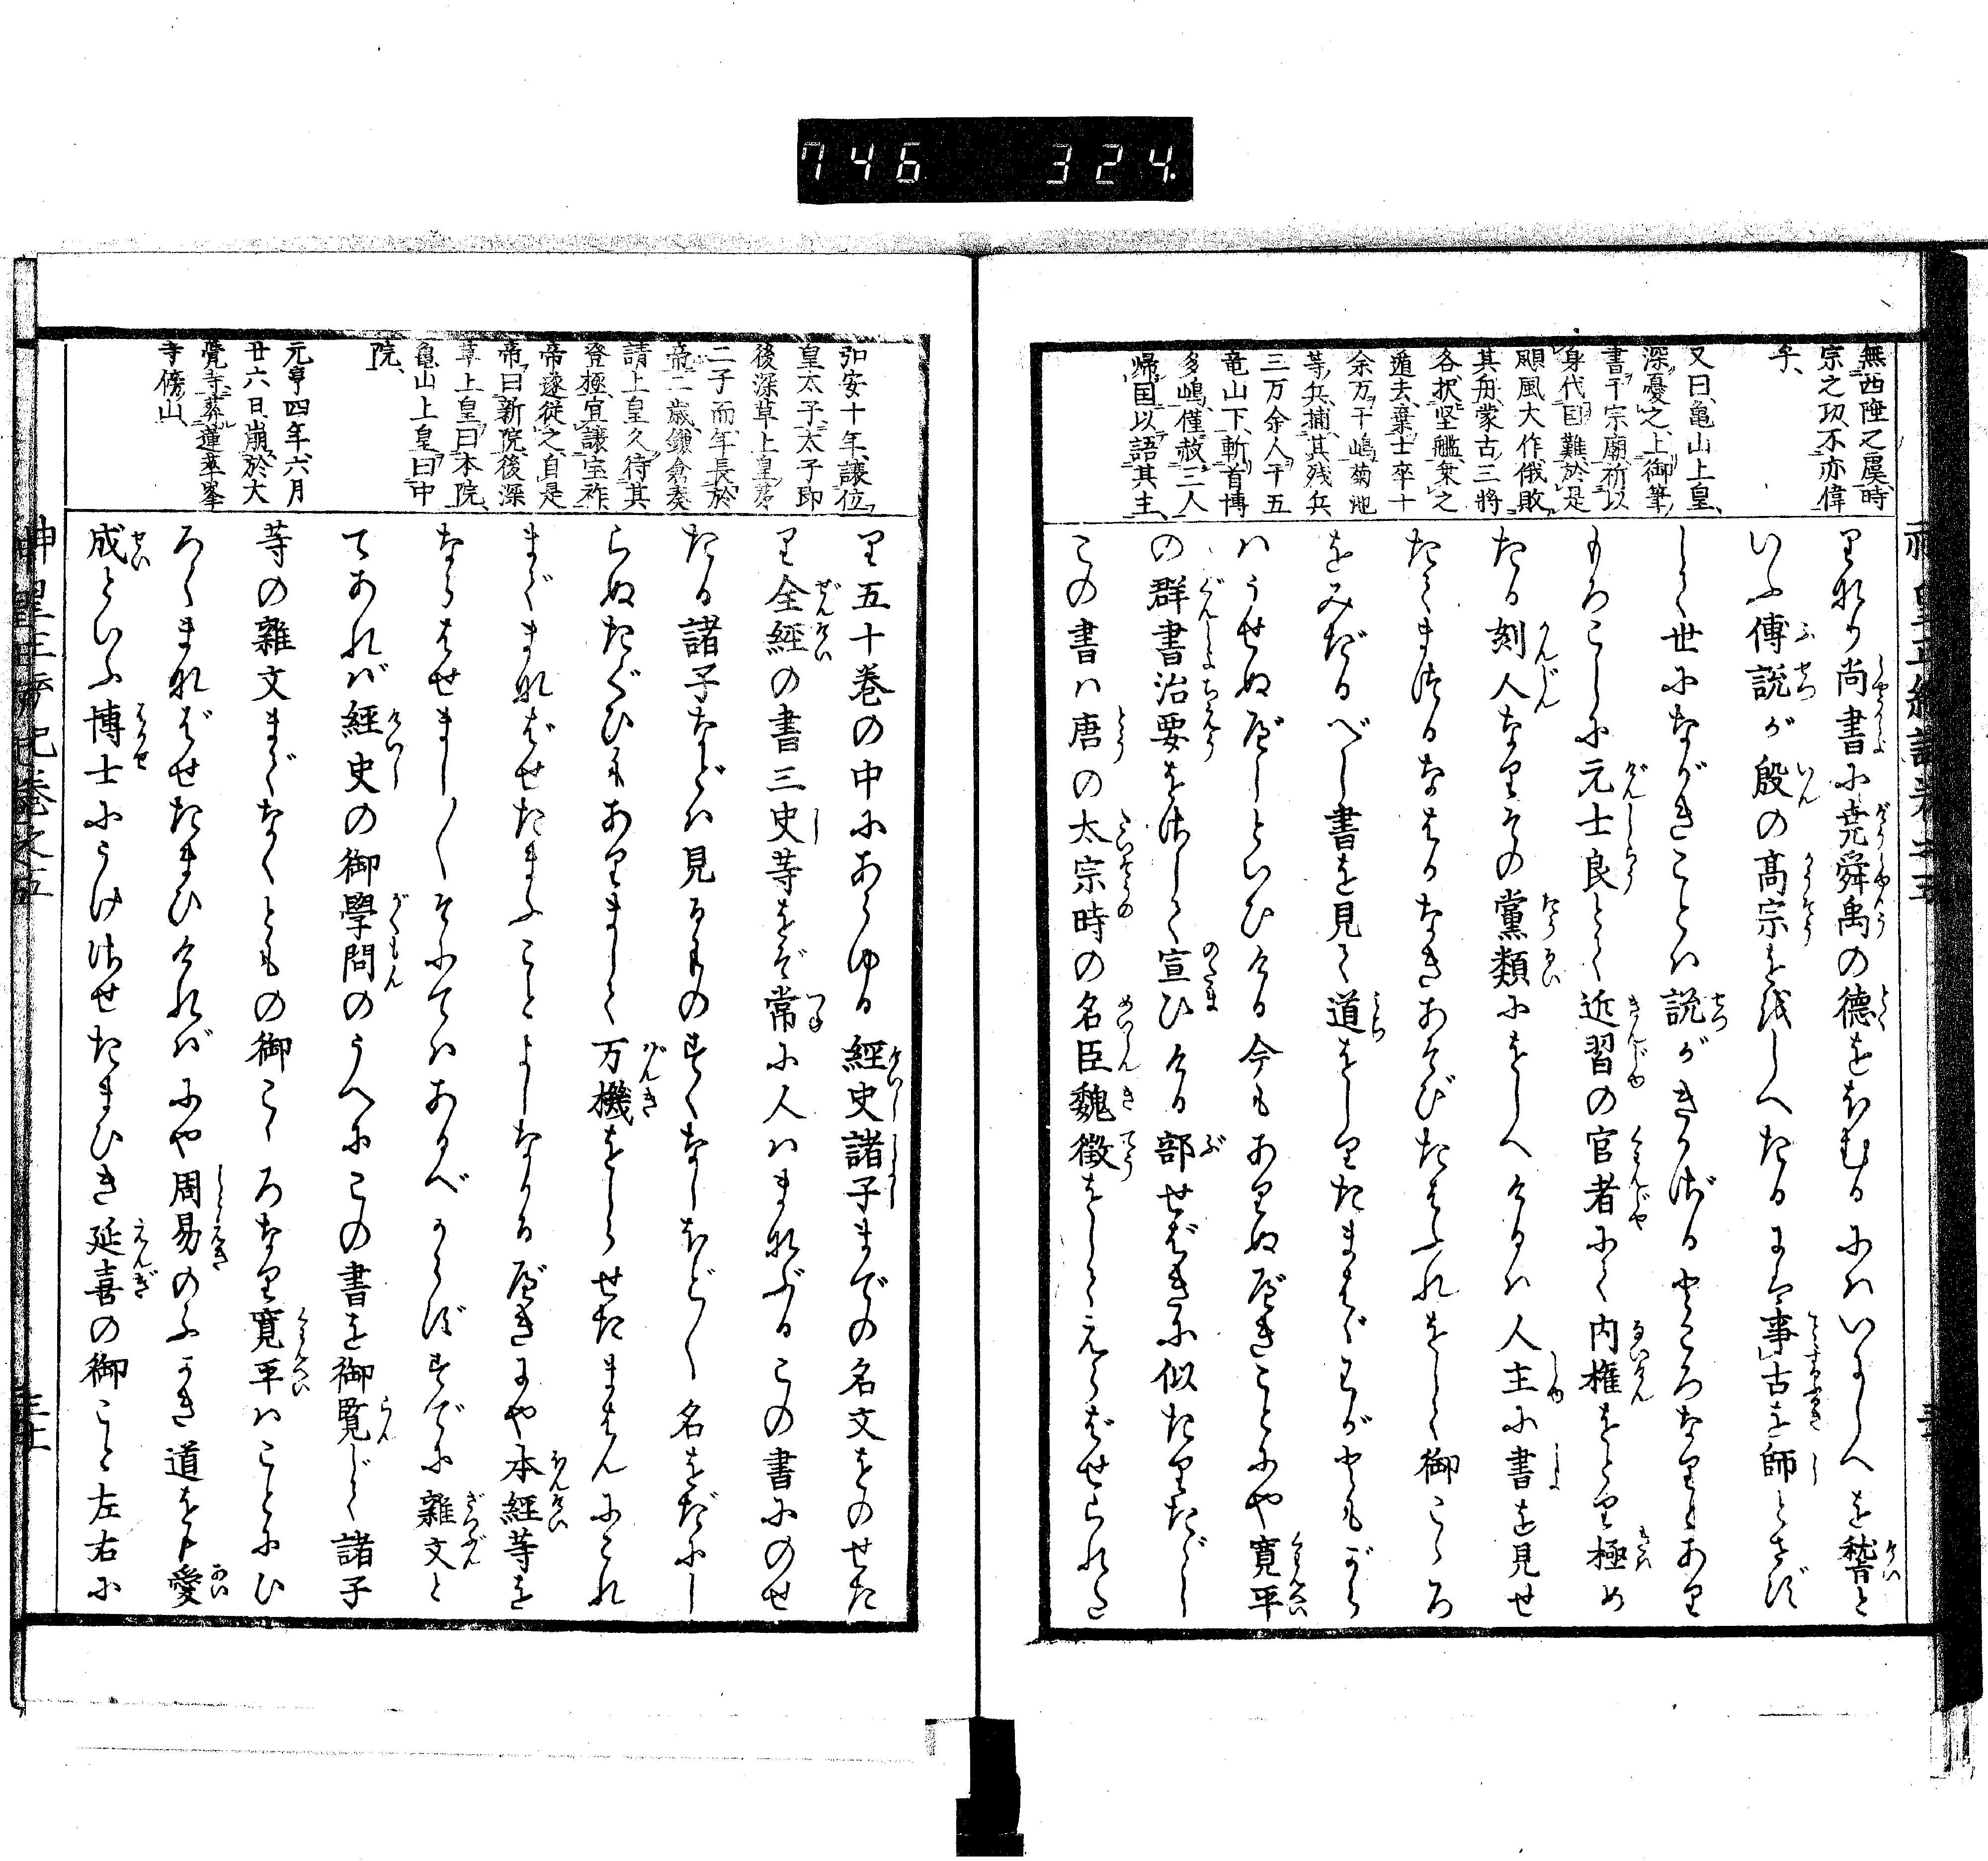 746 324.
無西陲之虞時
宗之功不亦偉
乎、
又曰亀山上皇、
深憂之、上御筆
書于宗廟祈以
身代国難於是
颶風大作俄敗
其舟蒙古三将
各択坚艦乗之
遁去、棄士卒十
余万于嶋菊池
等兵捕其残兵
三万余人于五
竜山下、斬首博
多嶋僅赦三人
帰国以語其主、
りなり尚書に堯舜禹の徳をほむるにハいにしへを稽と
いふ傅説が殷の髙宗ををしへたるにハ事古を師とせず
して世にながきことハ説がきかざるところなりとあり
もろこしに元士良とて近習の宦者にて内権をとり極め
たる刻人なりその黨類ををしへけるハ人主に書を見せ
たてまつるなはかなきあそびたはふれをして御こゝろ
をみだるべし書を見て道をしりたまはゞわがともがら
ハうせぬべしといひける今もありぬべきことにや寛平
の群書治要をさして宣ひける部せばきに似たりたゞし
この書ハ唐の太宗時の名臣魏徴をしてえらばせられた
り五十巻の中にあらゆる経史諸子までの名文をのせた
り全經の書三史等をぞ常に人ハまなぶるこの書にのせ
たる諸子などハ見るものすくなしほど〱名をだにし
らぬたぐひもありまして万機をしらせたまはんにこれ
までまなばせたまふことよしなかるべきにや本經等を
ならはせまし〱そにてハあるべからずすでに雜文と
てあれバ経史の御學問のうへにこの書を御覧じて諸子
等の雜文までなくともの御こゝろなり寛平ハことにひ
ろくまなばせたまひけれバにや周易のふかき道をも愛
成といふ博士にうけさせたまひき延喜の御こと左右に
弘安十年、讓位
皇太子、太子即
後深草上皇第
二子而年長於
帝二歳鎌倉奏
請上皇久待其
登極宜讓宝祚
帝遂従之自是
帝曰新院後深
草上皇曰本院、
亀山上皇曰中
院、
元亨四年六月
廿六日崩於大
覚寺葬蓮華峯
寺傍山、